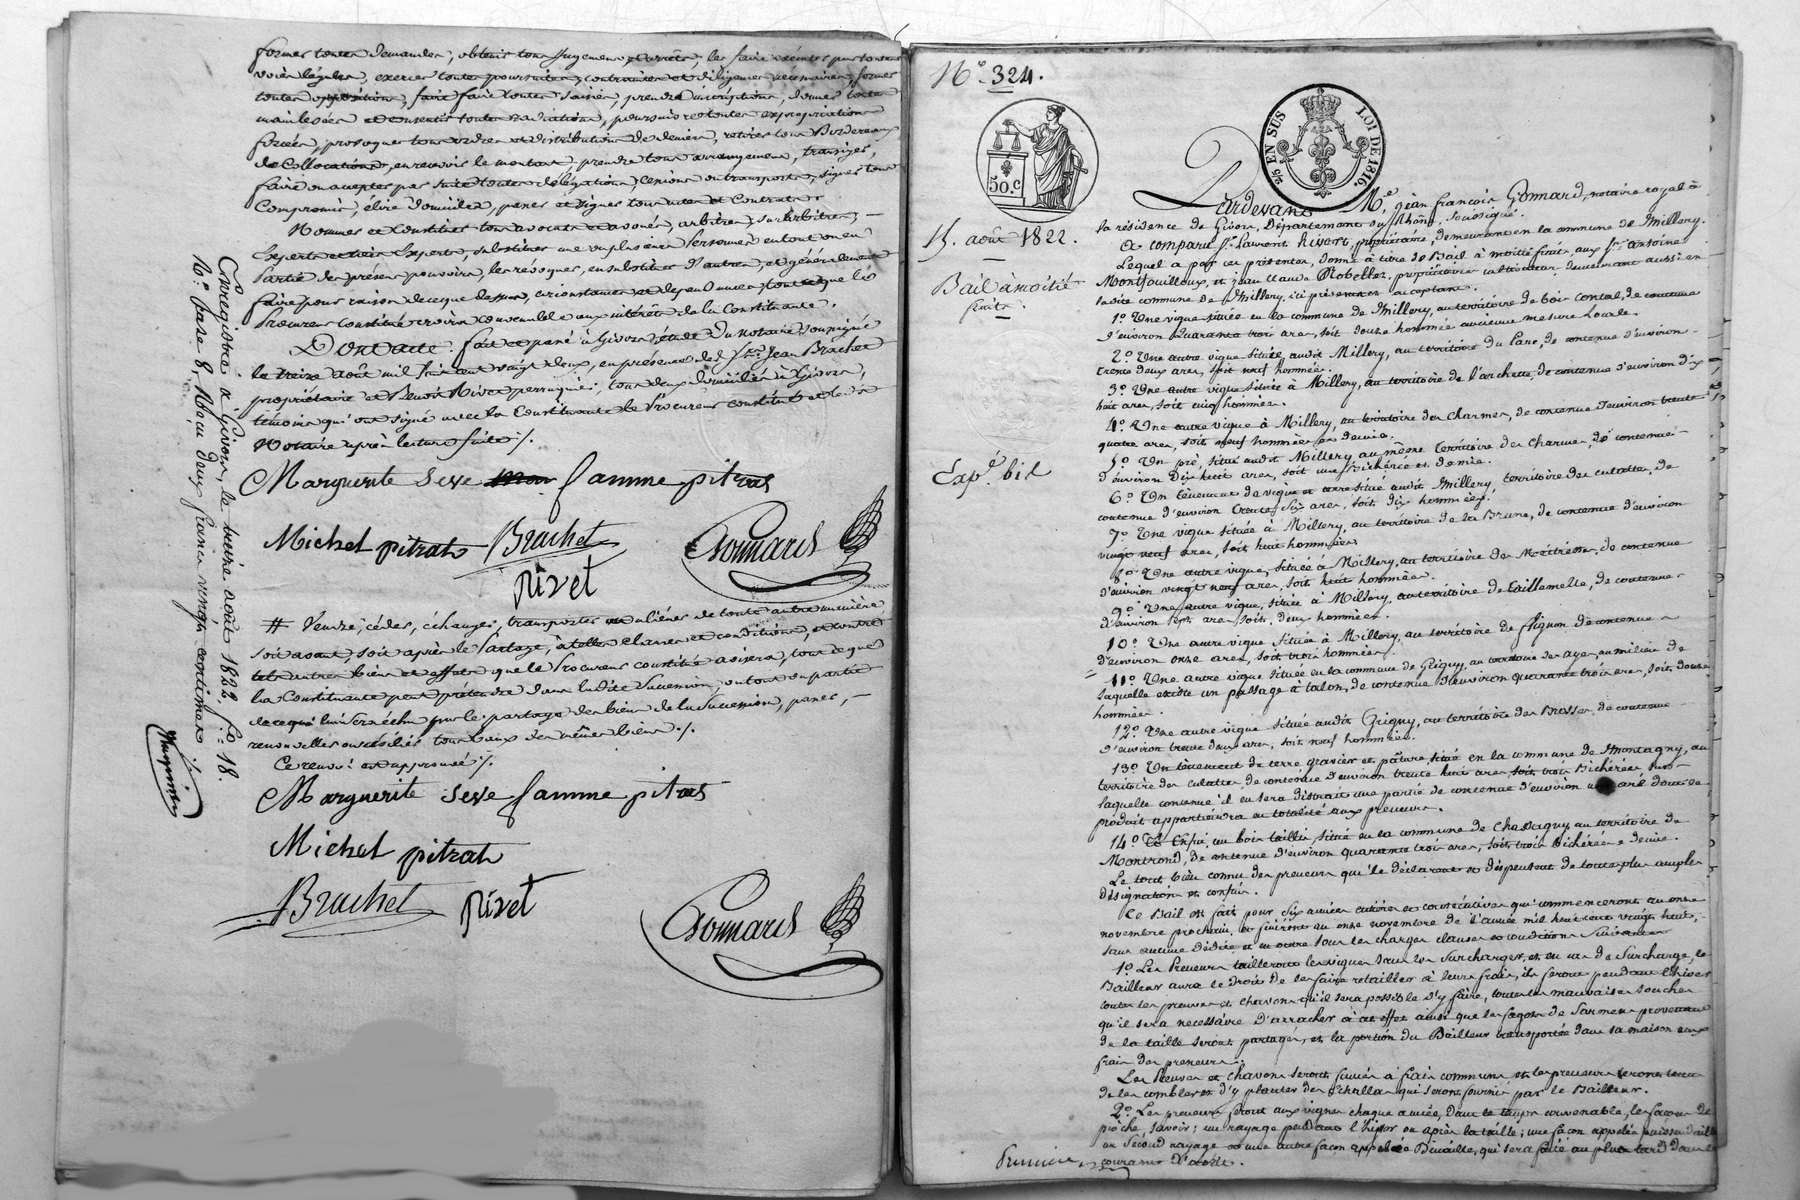 former toutes demandes, obtenir tous Jugemens, et arrêts, les faire exécuter par toutes
voies légales, exercer toutes poursuites, contraintes et diligences nécessaires, former
toutes oppositions, faire faire toutes saisies, prendre inscriptions, donner toutes
mainlevées et consentir toutes radiations, poursuivre toutes expropriations
forcées, provoquer tous ordres et distributions de deniers, retirer tous Bordereaux
de Collocations, en recevoir le montant, prendre tous arrangemens, transiger,
faire ou accepter par suite toutes délégations, cessions ou transports, signer tous
Compromis, élire domicile, passer et signer tous actes et Contrats.
Nommer et Constituer tous avocats et avoués, arbitres, surarbitres, —
Experts et tiers Experts, substituer une ou plusieurs Personnes en tout ou en
Partie des présens pouvoirs, les révoquer, en substituer d'autres, et généralement
faire pour raison de ce que dessus, circonstances et dépendances, tout ce que le
Procureur Constitué croira convenable aux intérêts de la Constituante.
Dont acte. fait et passé à Givors, étude du Notaire soussigné
le treize août mil huit cent vingt deux, en présence des Srs. Jean Brachet
propriétaire et Benoît Rivet perruquier, tous deux domiciliés à Givors,
témoins qui ont signé avec la Constituante le Procureur constitué et le dit
Notaire après lecture faite ./.
Marguerite seve famme pitras
Michel pitrat Brachet Gonnard
rivet
# Vendre, céder, échanger, transporter et aliéner de toute autre manière,
soit avant, soit après le Partage, à telles clauses et conditions, et contre
tels autres biens et effets que le Procureur constitué avisera, tout ce que
la Constituante peut prétendre dans ladite Succession, en tout ou partie
de ce qui lui sera échu par le partage des biens de la Succession, passer, —
renouveller ou résilier tous baux des mêmes biens ./.
Ce renvoi est approuvé ./.
Marguerite seve famme pitras
Michel pitrat
Brachet rivet Gonnard
Enregistré à Givors, le treize août 1822, fo. 18.
Ro. Case 8. Reçu deux francs vingt centimes
No. 324.
50.c
EN SUS LOI DE 1816.
15. août 1822.
Bail à moitié
fruits.
Expé. bil
Pardevant Me. Jean françois Gonnard, notaire royal à
la résidence de Givors, Département du Rhône, soussigné.
Est comparu Sr. Laurent Rivert, propriétaire, demeurant en la commune de Millery.
Lequel a par ces présentes, donné à titre de Bail à moitié fruits, aux Srs. antoine
Montfouilloux, et jean claude Robellez, propriétaires cultivateurs, demeurant aussi en
ladite commune de Millery, ici présens et acceptans.
1o. Une vigne située en la commune de Millery, au territoire de bois contal, de contenue
d'environ quarante trois ares, soit douze hommées ancienne mesure Locale.
2o. Une autre vigne située audit Millery, au territoire du Pave, de contenue d'environ -
trente deux ares, soit neuf hommées.
3o. Une autre vigne située à Millery, au territoire de l'archette, de contenue d'environ dix
huit ares, soit cinq hommées.
4o. Une autre vigne à Millery, au territoire des Charmes, de contenue d'environ trente
quatre ares, soit neuf hommées et demie.
5o. Un pré, situé audit Millery, au même Territoire des Charmes, de contenue —
d'environ Dix huit ares, soit une Bicherée et demie.
6o. Un tènement de vigne et terre situé audit Millery, territoire des culattes, de
contenue d'environ trente six ares, soit dix hommées.
7o. Une vigne située à Millery, au territoire de la Brune, de contenue d'environ
vingt neuf ares, soit huit hommées.
8o. Une autre vigne, située à Millery, au territoire des Meitresses, de contenue
d'environ vingt neuf ares, soit huit hommées.
9o. Une autre vigne, située à Millery, au territoire de taillemelle, de contenue
d'environ sept ares, soit, deux hommées.
10o. Une autre vigne située à Millery, au territoire de Pignon de contenue
d'environ onze ares, soit trois hommées.
11o. Une autre vigne située en la commune de Grigny, au territoire des ayes, au milieu de
laquelle existe un passage à talon, de contenue d'environ quarante trois ares, soit, douze
hommées.
12o. Une autre vigne située audit Grigny, au territoire des Brosses, de contenue
d'environ trente deux ares, soit neuf hommées.
13o. Un tènement de terre gravier et pâture, situé en la commune de Montagny, au
territoire des culattes, de contenue d'environ trente huit ares, soit trois Bicherées sur
laquelle contenue il en sera distrait une partie de contenue d'environ un are dont le
produit appartiendra en totalité aux preneurs.
14o. Et Enfin, un bois taillis, situé en la commune de Chassagny, au territoire de
Montrond, de contenue d'environ quarante trois ares, soit, trois Bicherées et demie.
Le tout bien connu des preneurs qui le déclarent et dispensent de toute plus ample
désignation et confin.
Ce Bail est fait pour six années entières et consécutives qui commenceront au onze
novembre prochain, et finiront au onze novembre de l'année mil huit cent vingt huit,
sans aucune dédite et en outre sous les charges clauses et conditions Suivantes
1o. Les Preneurs tailleront les vignes sans les surcharger, et en cas de Surcharge, le
Bailleur aura le droit de les faire retailler à leurs frais, ils feront pendant l'hiver
toutes les preuves et chavons qu'il sera possible d'y faire, toutes les mauvaises souches
qu'il sera nécessaire d'arracher à cet effet ainsi que les fagots de Sarmens provenant
de la taille seront partagés, et la portion du Bailleur transportée dans sa maison aux
frais des preneurs.
Les Preuves et chavons seront fumées à frais communs et les preneurs seront tenus
de les combler et d'y planter des Echallas qui seront fournis par le Bailleur.
2o. Les preneurs feront aux vignes chaque année, dans le temps convenable, les façons de
pioche, savoir; un rayage pendant l'hiver ou après la taille; une façon appelée
un Second rayage et une autre façon appelée Binaille, qui sera faite au plus tard dans le
courant d'août.